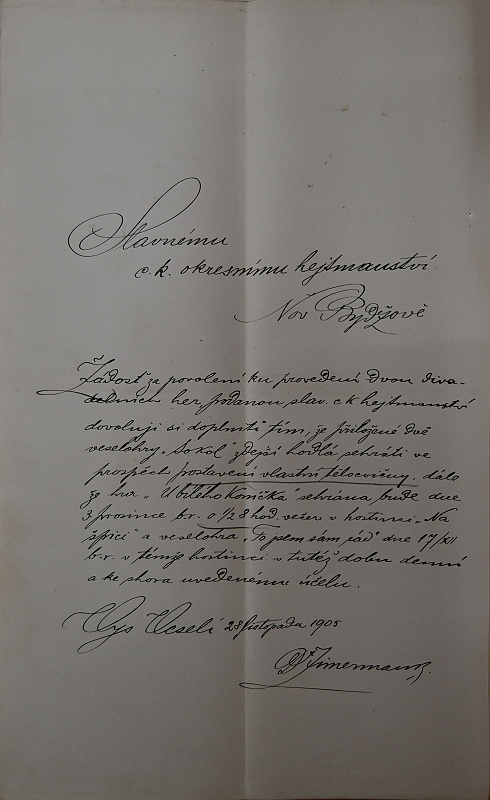 Slavnému
c. k. okresnímu hejtmanství
Nov Bydžově
Žádosť za povolení ku provedení dvou diva-
delních her podanou slav. c k hejtmanství
dovoluji si doplniti tím, že přiložené dvě
veselohry „Sokol" zdejší hodlá sehráti ve
prospěch postavení vlastní tělocvičny, dále
že hra „U bílého koníčka" sehrána bude dne
3 prosince b.r. o 1/2 8 hod. večer v hostinci „Na
špici" a veselohra „To jsem sám rád" dne 17/XII
b.r. v témže hostinci v tutéž dobu denní
a ke shora uvedenému účelu.
Vys Veselí 28 listopadu 1905
Dr Zimermann